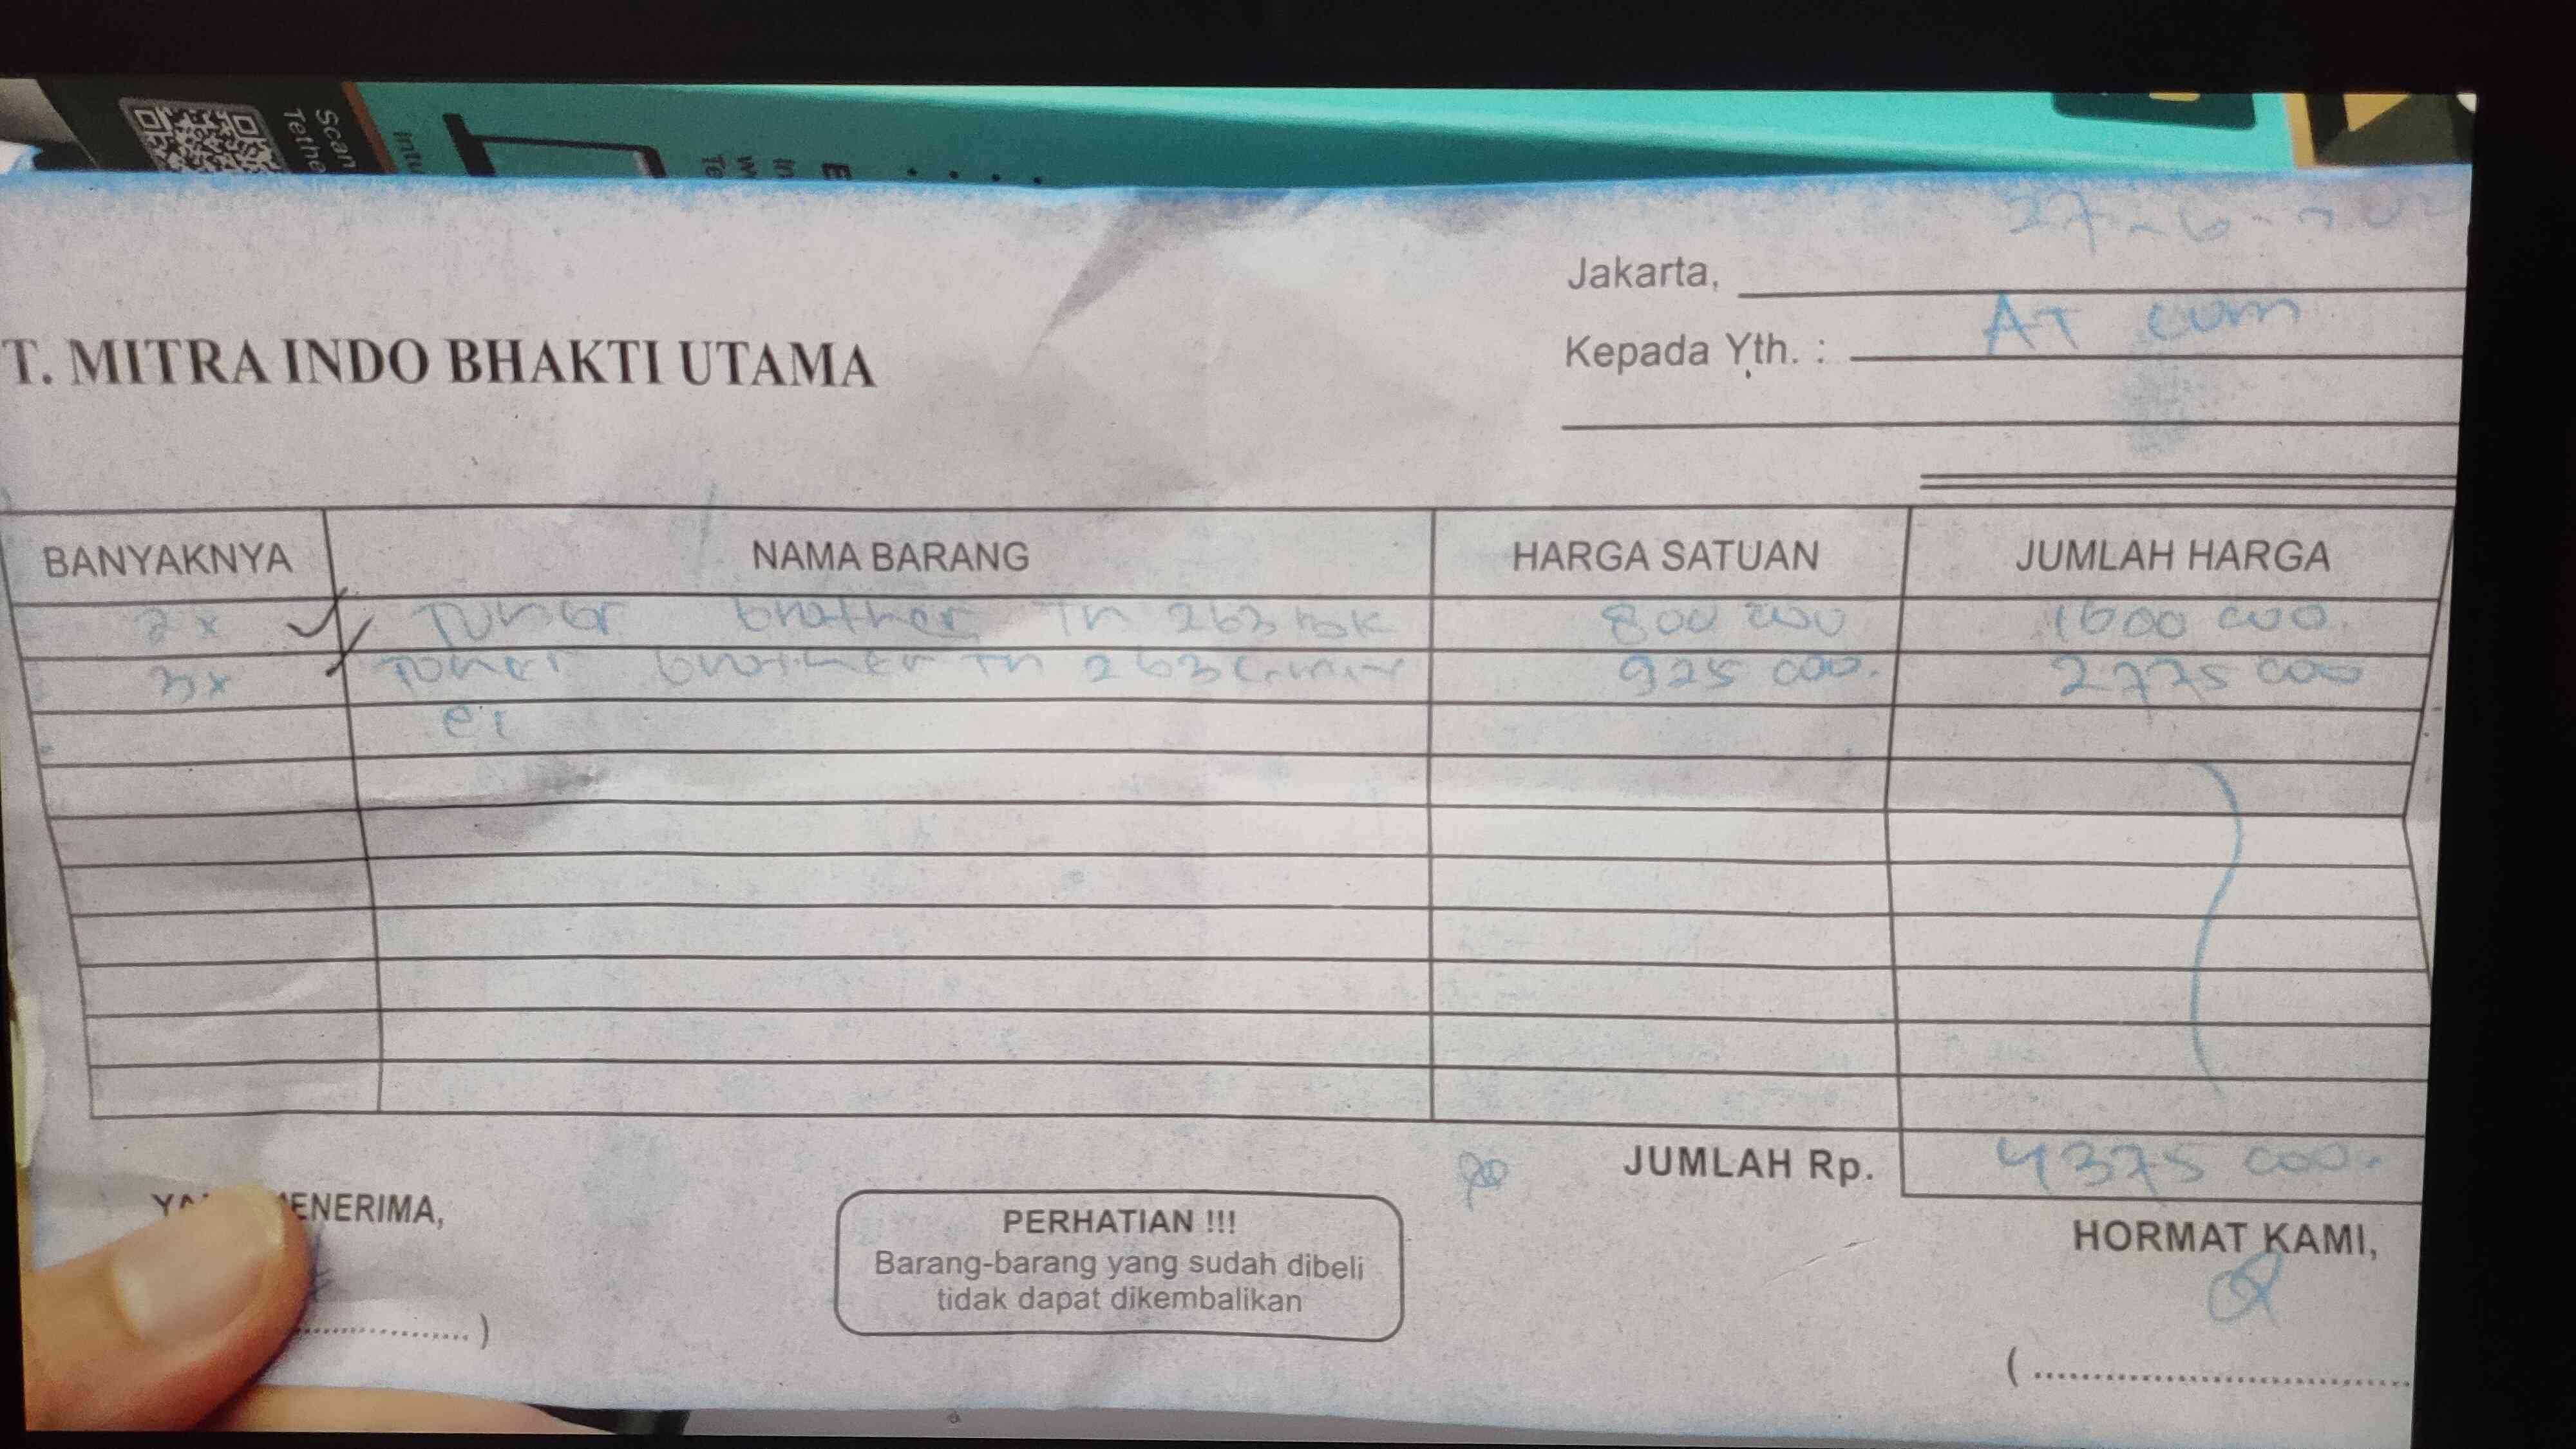 Scan
Tethe
Intu
27-6-202
Jakarta,
T. MITRA INDO BHAKTI UTAMA
Kepada Yth. : AT com
BANYAKNYA NAMA BARANG HARGA SATUAN JUMLAH HARGA
2x Toner brother Tn 263 800 000 1600 000.
3x Toner brother Tn 263 925 000. 2775 000
JUMLAH Rp. 4375 000.
MENERIMA,
PERHATIAN !!!
Barang-barang yang sudah dibeli
tidak dapat dikembalikan
HORMAT KAMI,